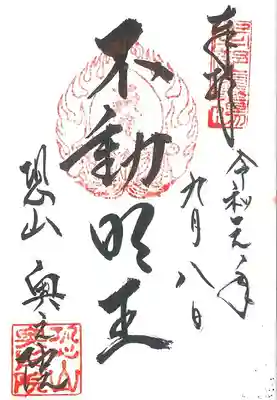 奉拝
令和元年
九月八日
不動明王
恐山
奥之院